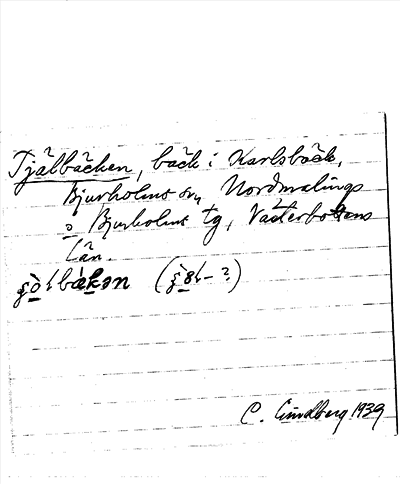 Tjälbäcken, bäck i Karlsbäck,
Bjurholms sn, Nordmalings
o Bjurholms tg, Västerbottens
län.
C. Lindberg 1939